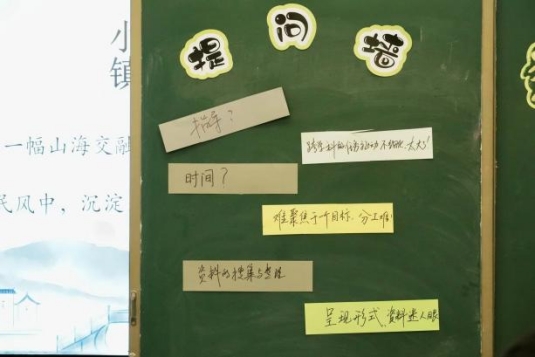 小
镇
一幅山海交融
民风中，沉淀
提问墙
指导？
跨学科的活动不够
时间？
难聚焦于一个目标、分工难！
资料的搜集与整理
呈现形式、资料迷人眼